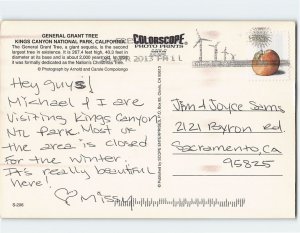 GENERAL GRANT TREE
KINGS CANYON NATIONAL PARK, CALIFORNIA
The General Grant Tree, a giant sequoia, is the second
largest tree in existence. It is 267.4 feet high, 40.3 feet in
diameter at its base and is about 2,000 years old. In
was formally dedicated as the Nation's Christmas Tree.
© Photograph by Arnold and Carole Compolongo
COLORSCOPE
PHOTO PRINTS
2013 PM 1 L
Hey guys!
Michael & I are
visiting Kings Canyon
Ntl Park. Most of
the area is closed
for the winter.
It's really beautiful
here!
♡ Missy
Jim & Joyce Sams
2121 Byron rd.
Sacramento, CA
95825
S-206